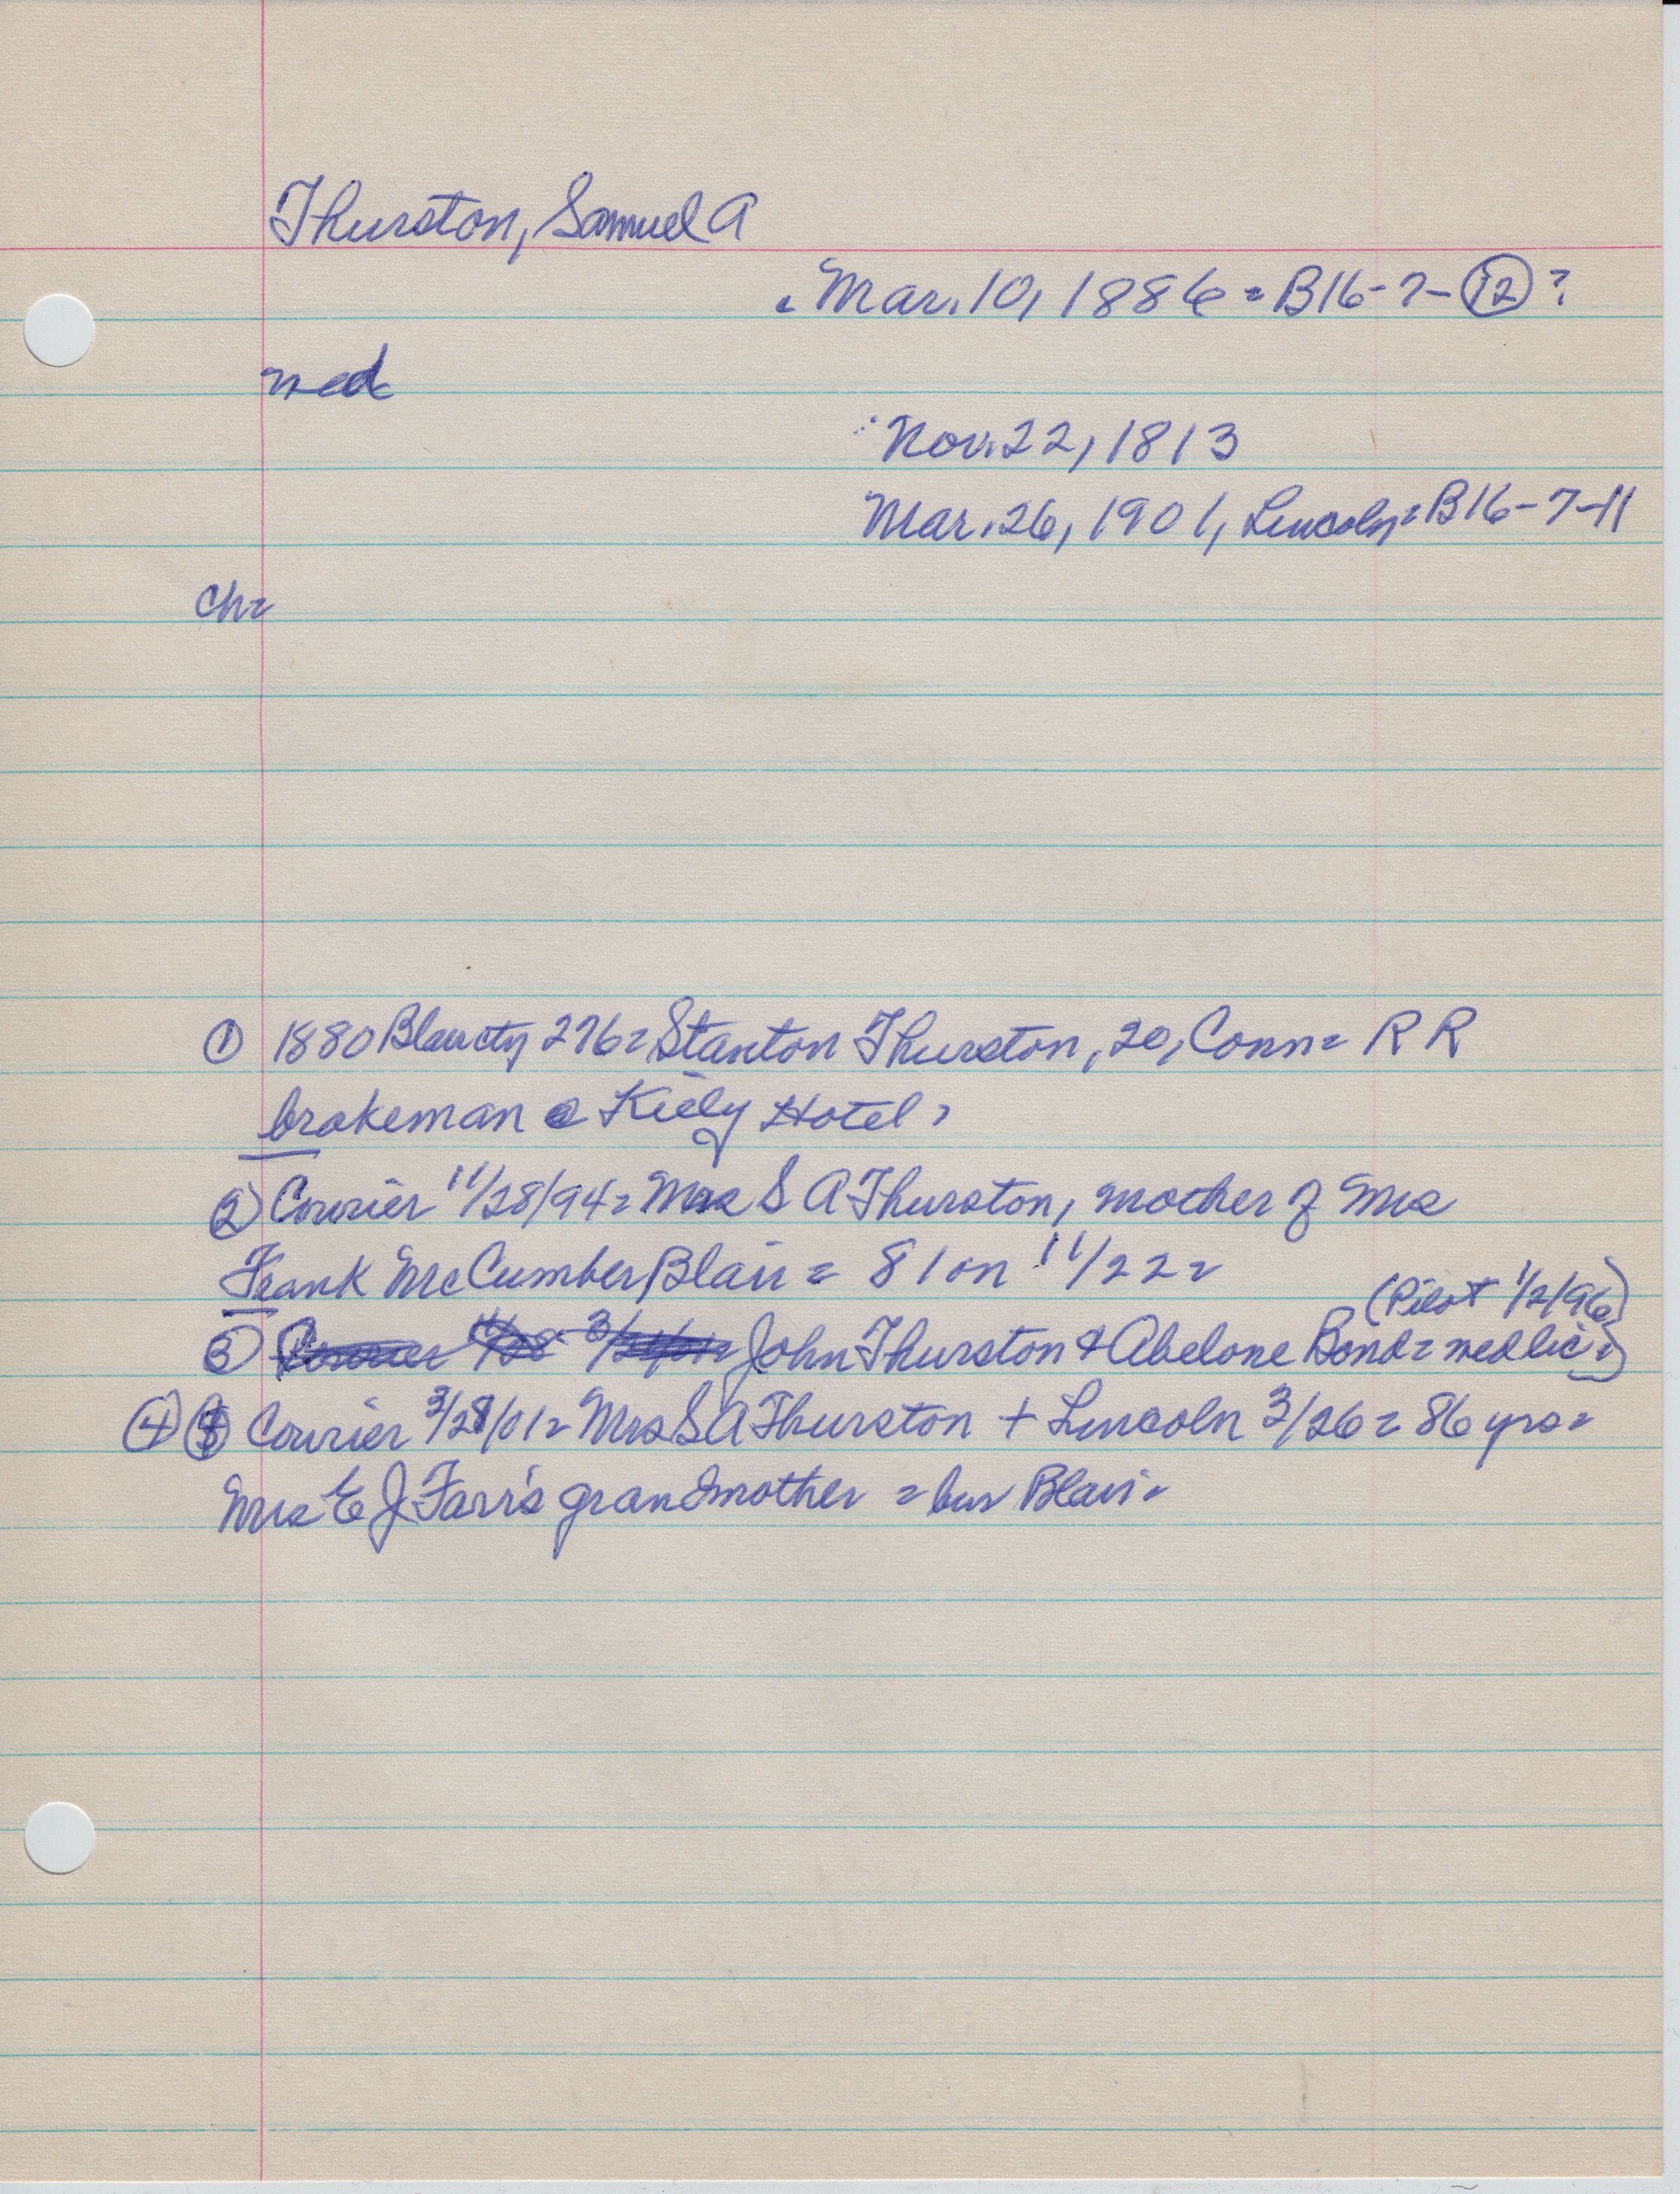 Thurston, Samuel A
Mar. 10, 1886 = B16-7-12 ?
wed
Nov. 22, 1813
Mar. 26, 1901, Lincoln = B16-7-11
Ch=
① 1880 Blair cty 276 = Stanton Thurston, 20, Conn = R R
brakeman @ Kiely Hotel =
② Courier 11/28/94 = Mrs S A Thurston, mother of Mrs
Frank McCumber, Blair = 81 on 11/22 =
(Pilot 1/2/96)
③ John Thurston & Abelone Bond = wed lic =
④ Courier 3/28/01 = Mrs S A Thurston + Lincoln 3/26 = 86 yrs =
Mrs E J Farr's grandmother = bur Blair =